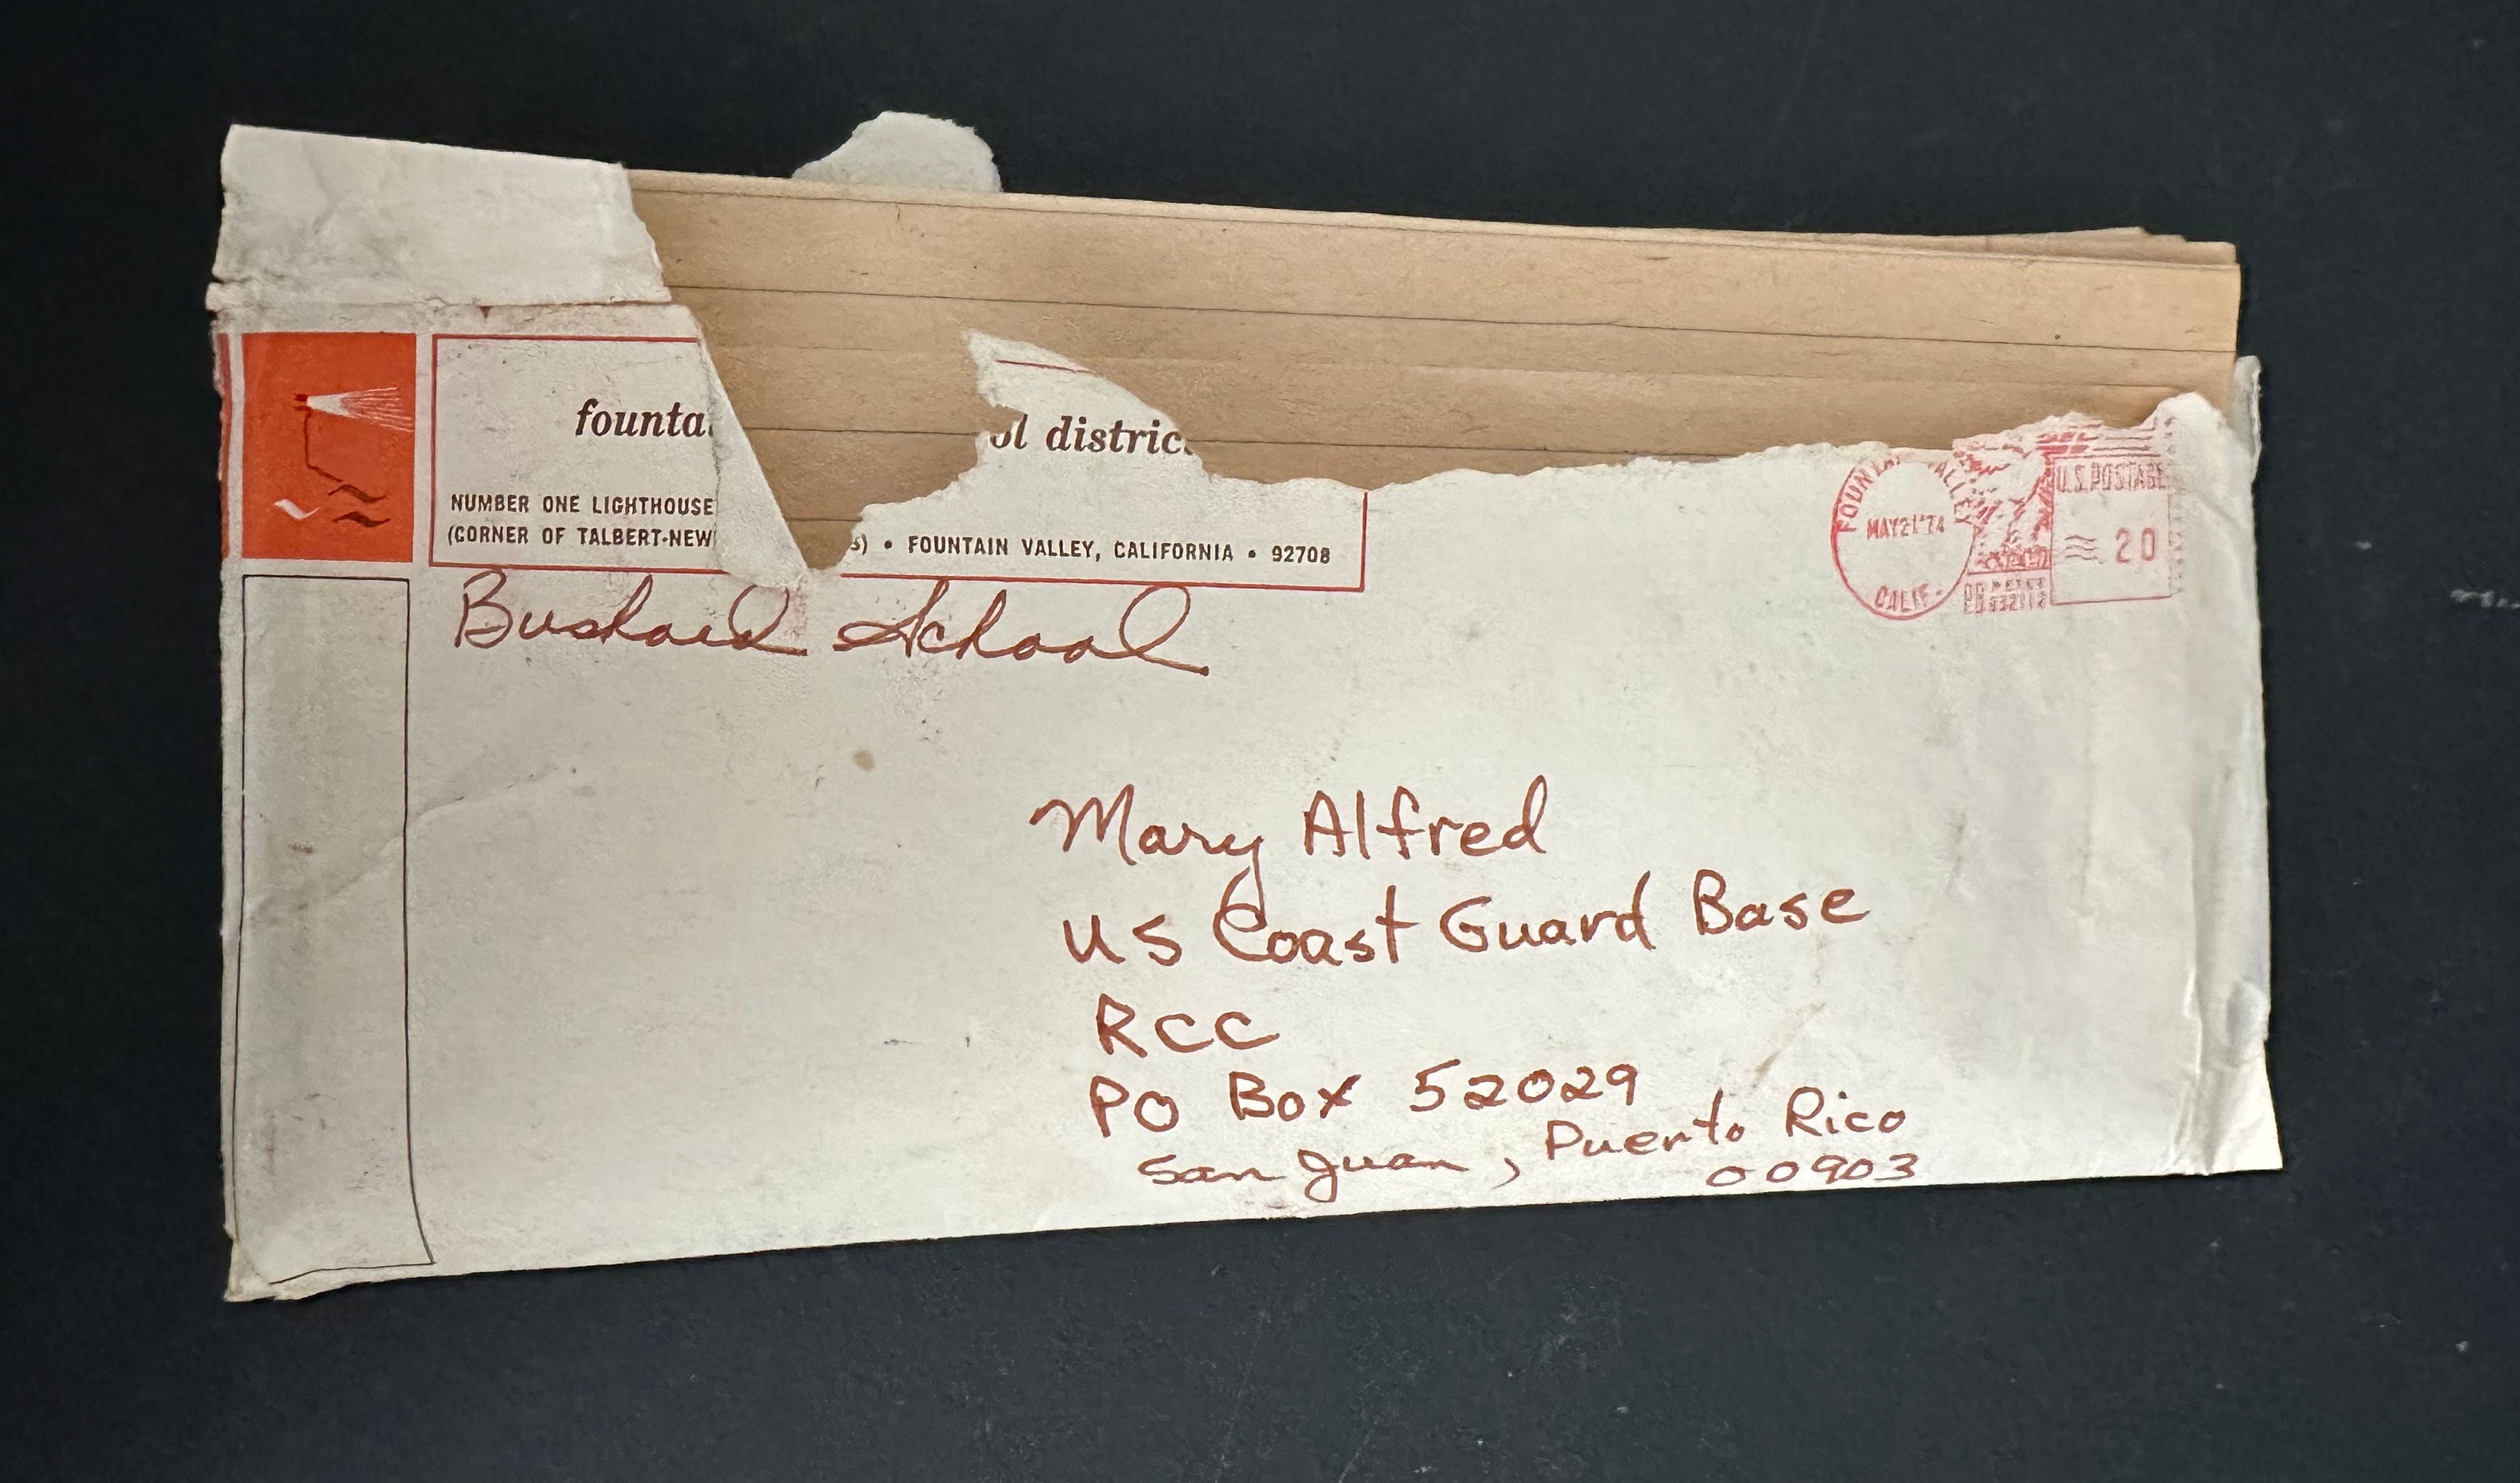 founta ol distric
NUMBER ONE LIGHTHOUSE
(CORNER OF TALBERT-NEW s) • FOUNTAIN VALLEY, CALIFORNIA • 92708
Bushard School
FOUNTAIN VALLEY
MAY 21 '74
CALIF.
U.S. POSTAGE
20
PB METER
Mary Alfred
US Coast Guard Base
RCC
PO Box 52029
San Juan, Puerto Rico
00903